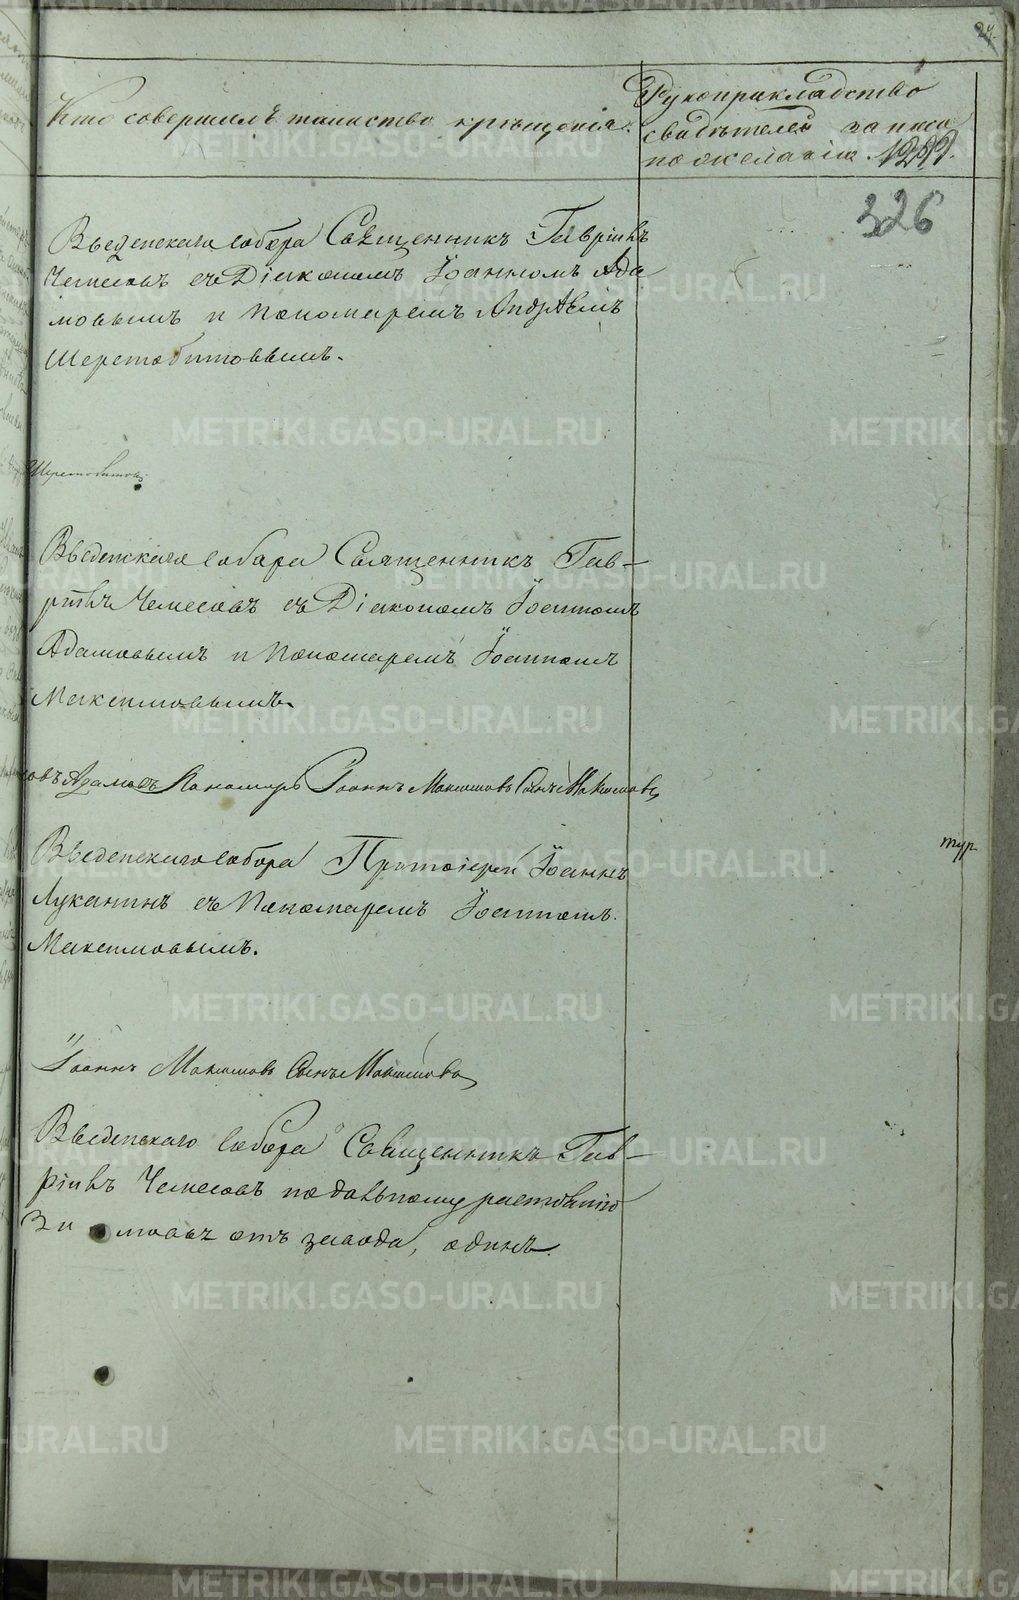 24.
Кто совершилъ таинство крещенія.
Рукоприкладство
свидѣтелей записи
по желанію.
326
Введенскаго собора Священникъ Гаврiилъ
Чемесовъ съ Дiакономъ Iоанномъ Ада
мовымъ и Пономаремъ Андрѣемъ
Шерстобитовымъ.
Шерстобитовъ
Введенскаго собора Священникъ Гав–
рiилъ Чемесовъ съ Дiакономъ Iоанномъ
Адамовымъ и Пономаремъ Iоанномъ
Максимовымъ.
овъ Адамовъ Пономарь Iоаннъ Максимовъ Сынъ Максимовъ
Введенскаго собора Протоiерей Iоаннъ
Луканинъ съ Пономаремъ Iоанномъ
Максимовымъ.
Iоаннъ Максимовъ Сынъ Максимовъ
Введенскаго собора Священникъ Гав–
рiилъ Чемесовъ по дальному растоянiю
отъ завода, одинъ.
тур
METRIKI.GASO-URAL.RU